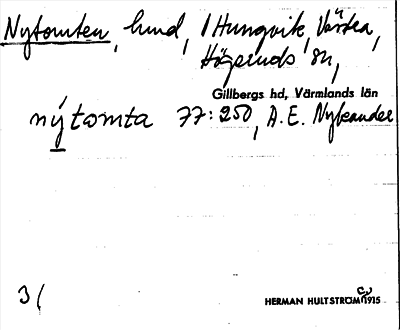 Nytomten, hmd, / Hungvik, Västra,
Högeruds sn,
Gillbergs hd, Värmlands län
nýtomta 77:250, A. E. Nylander
3/
HERMAN HULTSTRÖM 1915